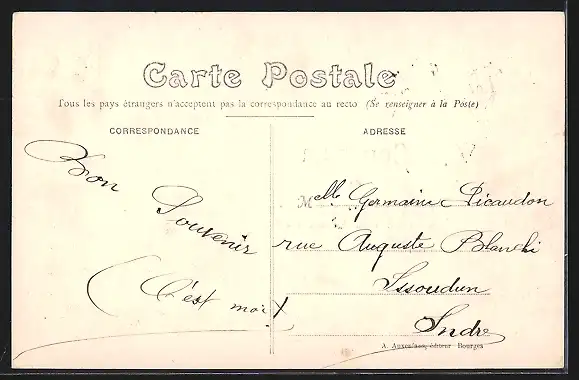 Carte Postale
Tous les pays étrangers n'acceptent pas la correspondance au recto (Se renseigner à la Poste)
CORRESPONDANCE
Bon
Souvenir
(C'est moi)
ADRESSE
Melle Germaine Picaudon
rue Auguste
Issoudun
Indre
éditeur Bourges